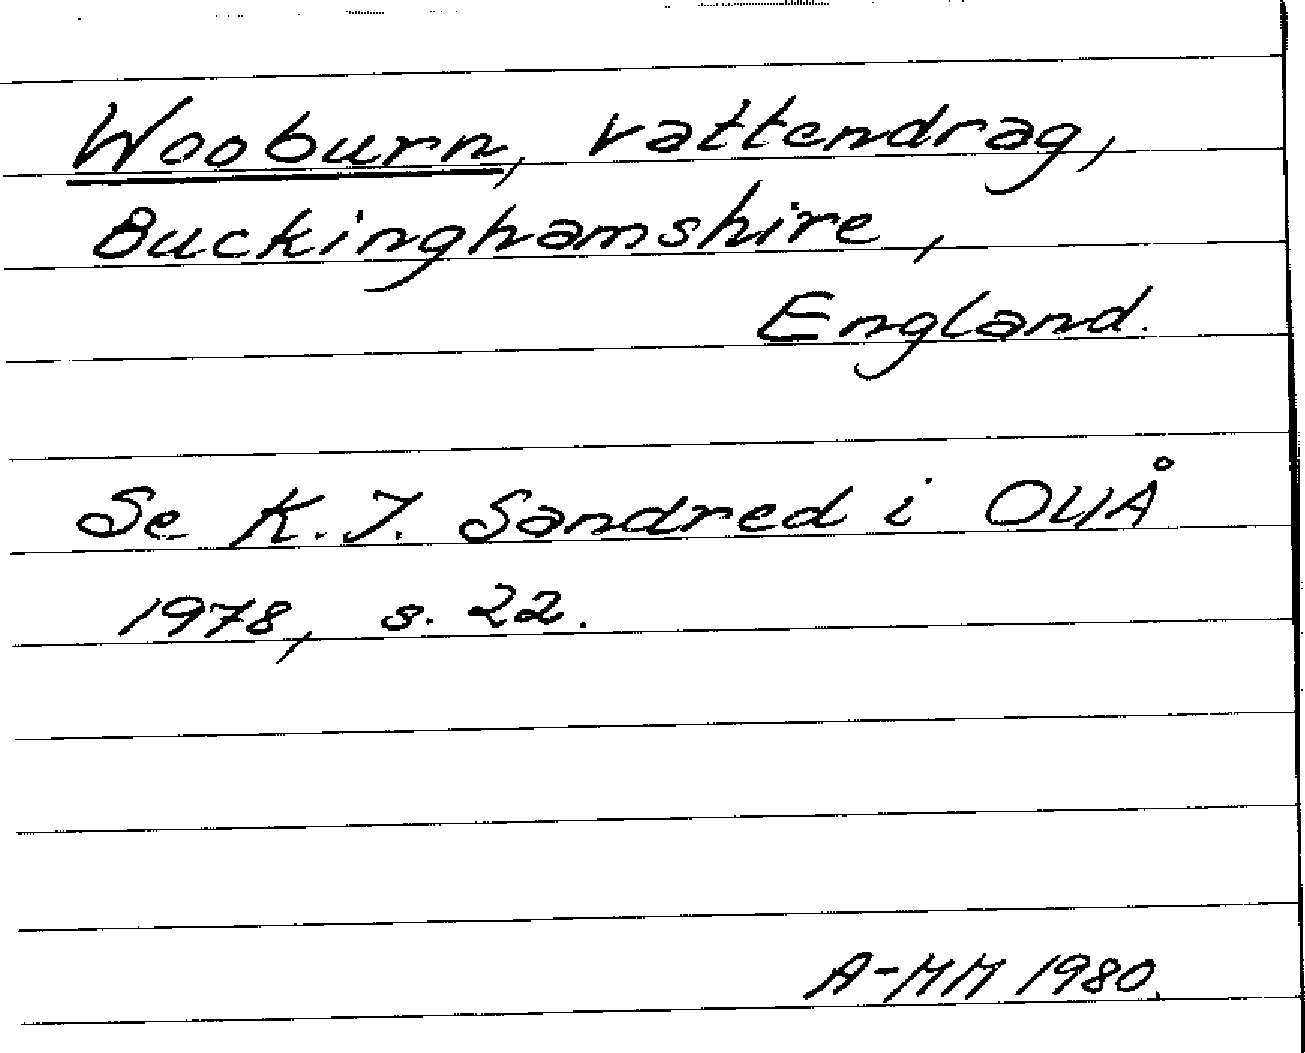 Wooburn, vattendrag,
Buckinghamshire,
England.
Se K.I. Sandred i OUÅ
1978, s. 22.
A-MM 1980.